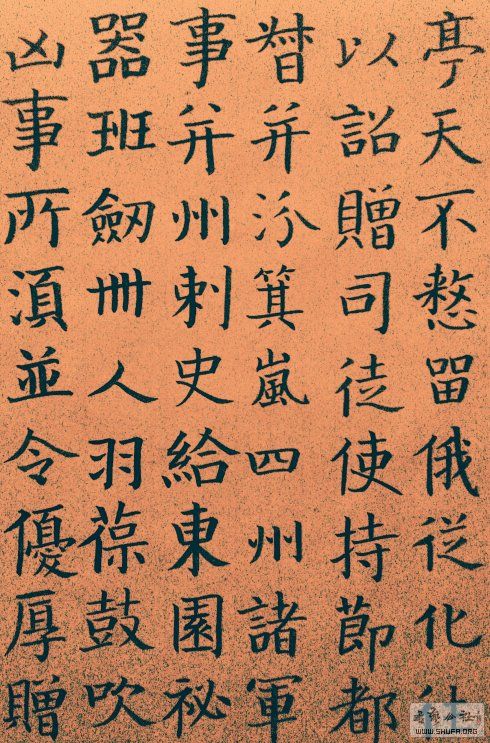 亭天不憗留俄從化
以詔贈司徒使持節都
督并汾箕嵐四州諸軍
事并州刺史給東園祕
器班劒卌人羽葆鼓吹
凶事所須並令優厚贈
WWW.SHUFA.ORG